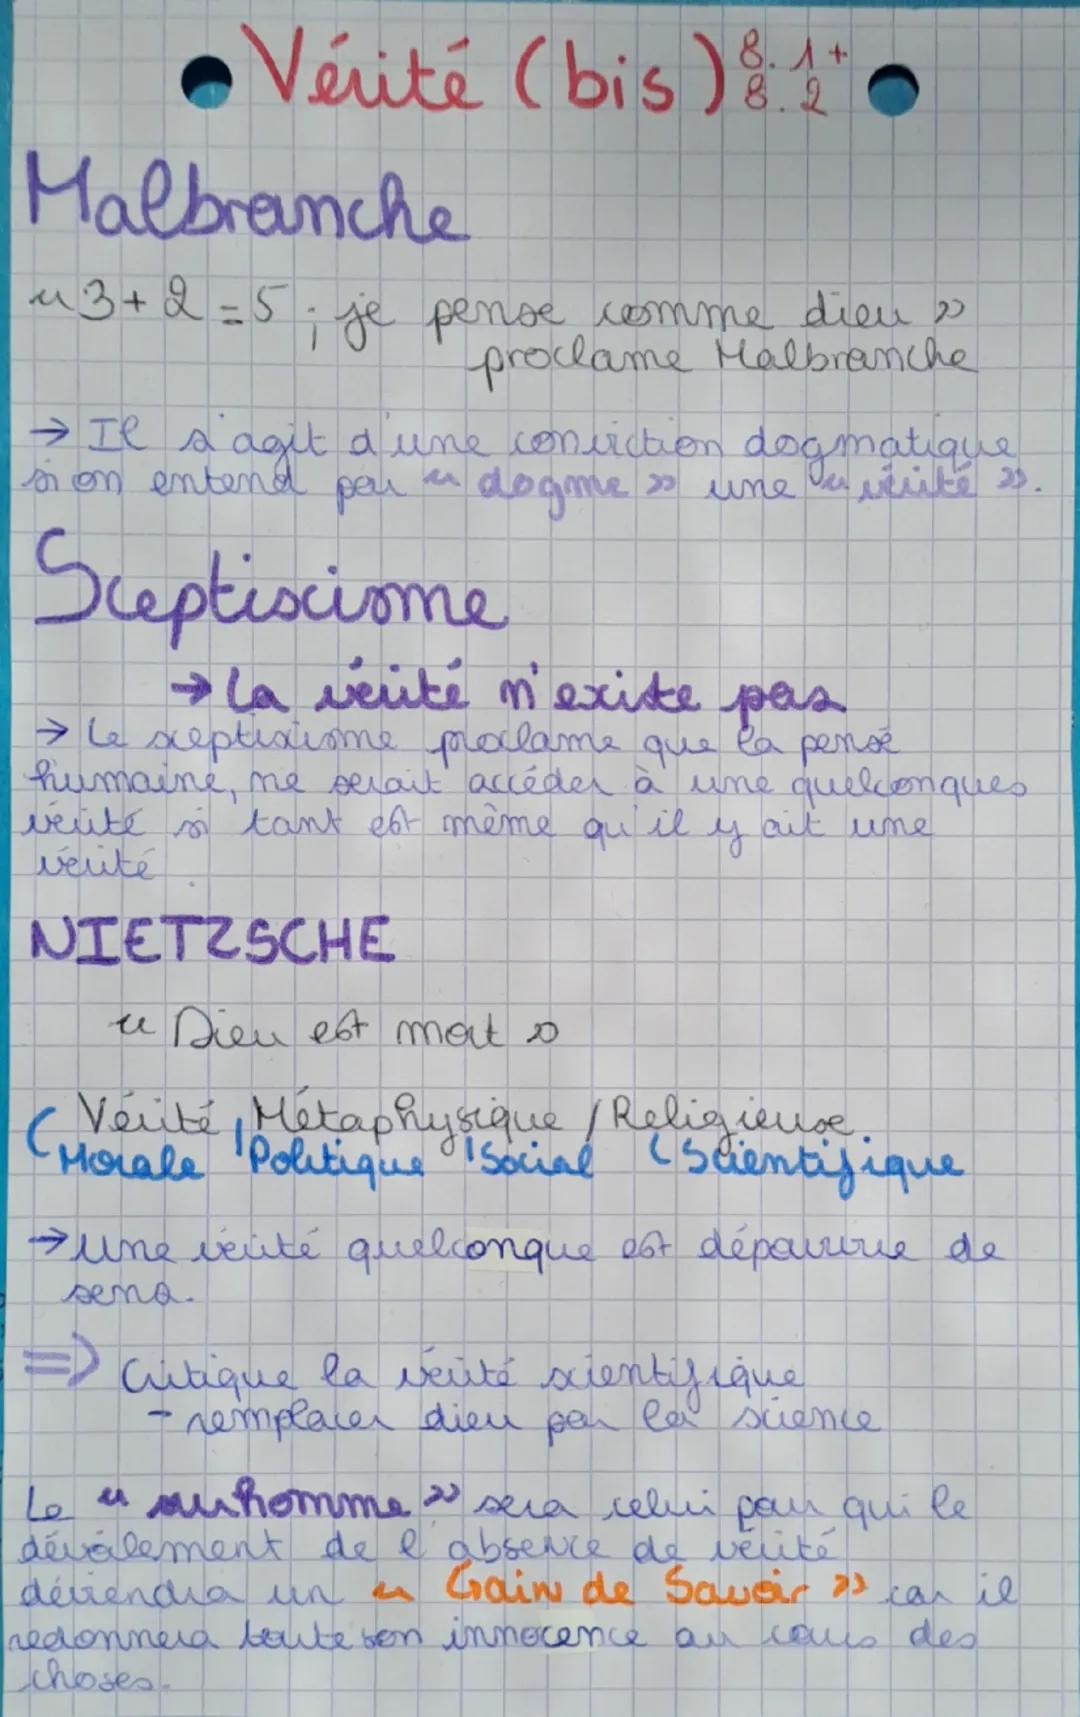 Vérité (bis) 8.1+
8.2
Malbranche
« 3+2=5 ; je pense comme dieu »
proclame Malbranche
→ Il s'agit d'une conviction dogmatique
si on entend par « dogme » une « vérité ».
Sceptiscisme
→ La vérité n'existe pas
→ Le sceptiscisme proclame que la pensé
humaine, ne serait accéder à une quelconques
vérité si tant est même qu'il y ait une
vérité.
NIETZSCHE
« Dieu est mort »
( Vérité, Métaphysique / Religieuse.
Morale / Politique / Social ( Scientifique
→ Une vérité quelconque est dépourvue de
sens.
=> Critique la vérité scientifique
- remplacer dieu par la science
Le « surhomme » sera celui pour qui le
dévoilement de l'absence de vérité
déviendra un « Gain de Savoir » car il
redonnera toute son innocence au cours des
choses.